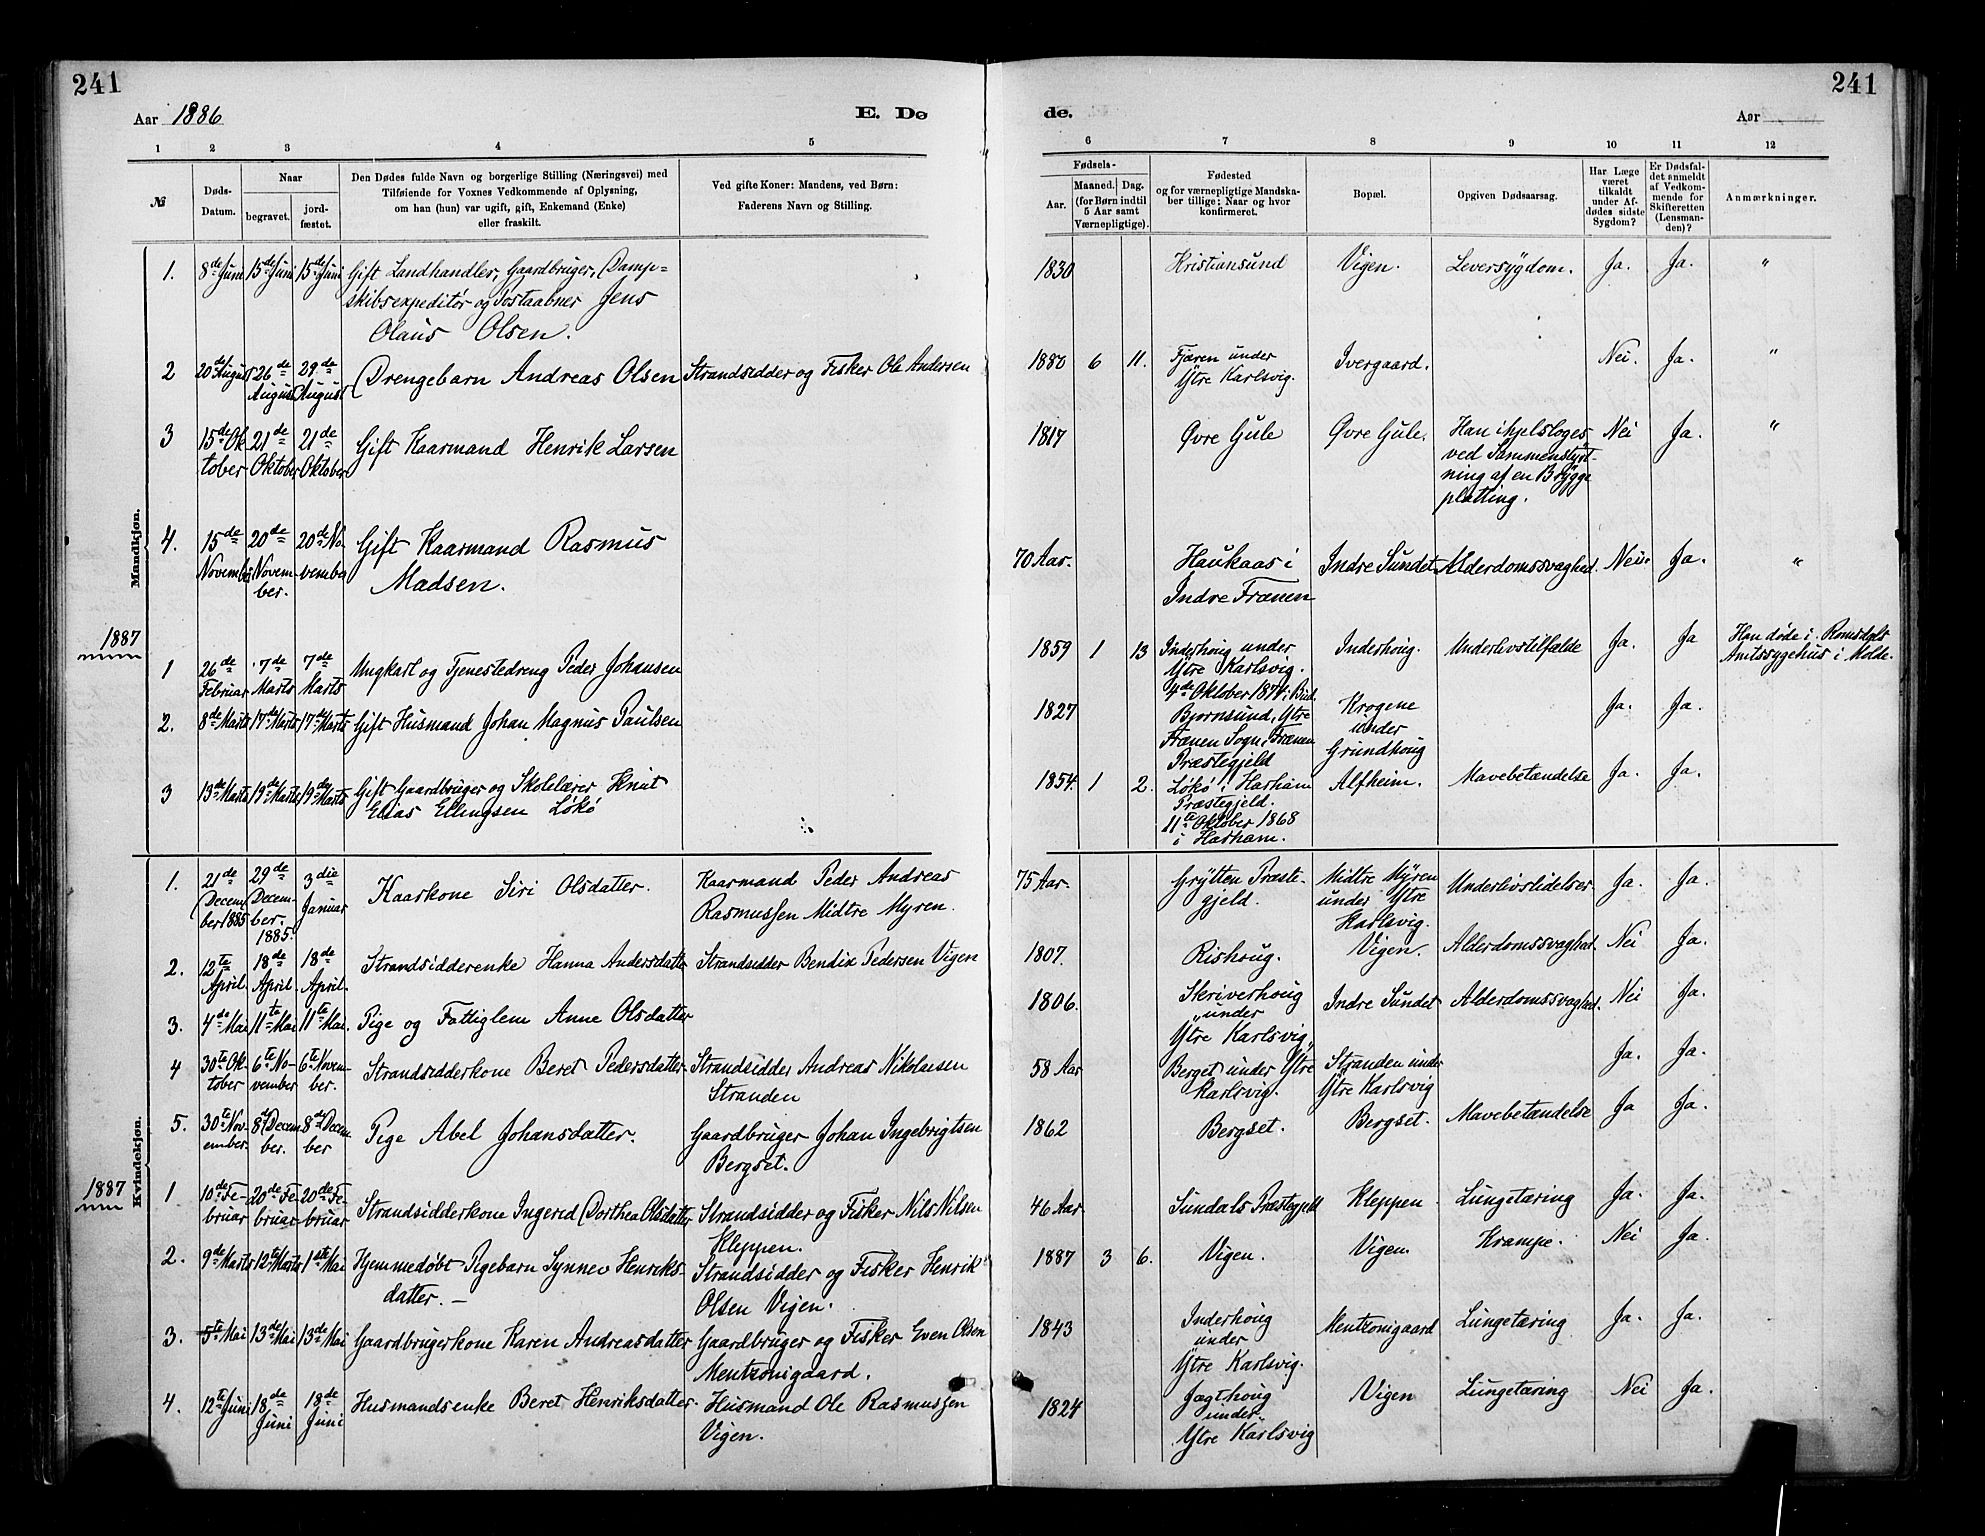 241
241
Aar 1886
E. Dø
de.
Aar
1
2
3
4
5
6
7
8
9
10
11
12
№
Døds-
Datum.
Naar
begravet.
jord-
fæstet.
Den Dødes fulde Navn og borgerlige Stilling (Næringsvei) med
Tilføiende for Voxnes Vedkommende af Oplysning,
om han (hun) var ugift, gift, Enkemand (Enke)
eller fraskilt.
Ved gifte Koner: Mandens, ved Børn:
Faderens Navn og Stilling.
Fødsels-
Aar.
Maaned. Dag.
(for Børn indtil
5 Aar samt
Værnepligtige).
Fødested
og for værnepligtige Mandska-
ber tillige: Naar og hvor
konfirmeret.
Bopæl.
Opgiven Dødsaarsag.
Har Læge
været
tilkaldt
under Af-
dødes sidste
Sygdom?
Er Dødsfal-
det anmeldt
af Vedkom-
mende for
Skifteretten
(Lensman-
den)?
Anmærkninger.
Mandkjøn.
1. 8de Juni 15de Juni 15de Juni Gift Landhandler, Gaardbruger, Damp- 1830 Kristiansund Vigen. Leversygdom. Ja. Ja. "
skibsexpeditør og Postaabner Jens
Olaus Olsen.
2 20de August 26de August 29de August Drengebarn Andreas Olsen Strandsidder og Fisker Ole Andersen 1880 6 11. Fjæren under Ivergaard. Nei. Ja. "
Ytre Karlsvig.
3 15de Ok 21de 21de Gift Kaarmand Henrik Larsen 1817 Øvre Gule Øvre Gule. Han ihjelsloges Nei Ja. "
tober Oktober Oktober ved Sammenstyrt-
ning af en Brygge
platting.
4. 15de 20de 20de No- Gift Kaarmand Rasmus 70 Aar. Haukaas i Indre Sundet Alderdomssvaghed. Nei. Ja. "
November Novem- vember Madsen. Indre Frænen
ber.
1887
1 26de 7de 7de Ungkarl og Tjenestedreng Peder Johansen 1859 1 13 Inderhoug under Inderhoug. Underlivstilfælde Ja. Ja Han døde i Romsdals
Februar Marts Marts Ytre Karlsvig. Amtssygehus i Molde.
4de Oktober 1874 i Bud.
2. 8de Marts 17de Marts 17de Marts Gift Husmand Johan Magnus Paulsen 1827 Bjørnsund, Ytre Krogene Ja. Ja.
Frænen Sogn i Frænen under
Præstegjeld Grundhoug
3 13de Marts 19de Marts 19de Marts Gift Gaardbruger og Skolelærer Knut 1854. 1 2. Løkø i Harham Alfheim. Mavebetændelse Ja. Ja.
Elias Ellingsen Løkø Præstegjeld.
11te Oktober 1868
i Harham.
Kvindekjøn.
1. 21de 29de 3die Kaarkone Siri Olsdatter. Kaarmand Peder Andreas 75 Aar. Grytten Præste- Midtre Myren Underlivslidelser Ja. Ja.
Decem Decem- Januar Rasmussen Midtre Myren. gjeld. under Ytre
ber 1885 ber. 1885. Karlsvig.
2. 12te 18de 18de Strandsidderenke Hanna Andersdatter Strandsidder Bendix Pedersen Vigen 1807. Rishoug. Vigen. Alderdomssvaghed. Nei Ja.
April. April. April.
3. 4de Mai 11te Mai 11te Mai. Pige og Fattiglem Anne Olsdatter 1806. Skriverhoug Indre Sundet Alderdomssvaghed. Nei Ja.
under
Ytre Karlsvig
4 30te Ok- 6te No- 6te Novem- Strandsidderkone Beret Pedersdatter Strandsidder Andreas Nikolaisen 58 Aar Berget under Ytre Stranden under Ja. Ja.
tober vember ber. Stranden Karlsvig. Ytre Karlsvig
5. 30te Nov- 8de Decem 8de Decem Pige Abel Johansdatter. Gaardbruger Johan Ingebrigtsen 1862 Bergset. Bergset. Mavebetændelse Ja Ja.
ember. ber. ber Bergset.
1887
1 10de Fe- 20de Fe- 20de Fe- Strandsidderkone Ingerid Dorthea Olsdatter Strandsidder og Fisker Nils Nilsen 46 Aar Sundals Præstegjeld Kleppen. Lungetæring Ja. Ja.
bruar bruar bruar Kleppen.
2. 9de Marts 12te Marts 1ste Mai Hjemmedøbt Pigebarn Synnev Henriks- Strandsidder og Fisker Henrik 1887 3 6. Vigen. Vigen. Krampe. Nei Ja.
datter. — Olsen Vigen.
3. 5te Mai 13de Mai 13de Mai Gaardbrugerkone Karen Andreasdatter Gaardbruger og Fisker Even Olsen 1843 Inderhoug Mentzonigaard Lungetæring Ja. Ja.
Mentzonigaard. under
Ytre Karlsvig.
4. 12te Juni 18de 18de Husmandsenke Beret Henriksdatter. Husmand Ole Rasmussen 1824 Jagthoug Vigen Lungetæring Nei Ja.
Juni Juni Vigen. under
Ytre Karlsvig